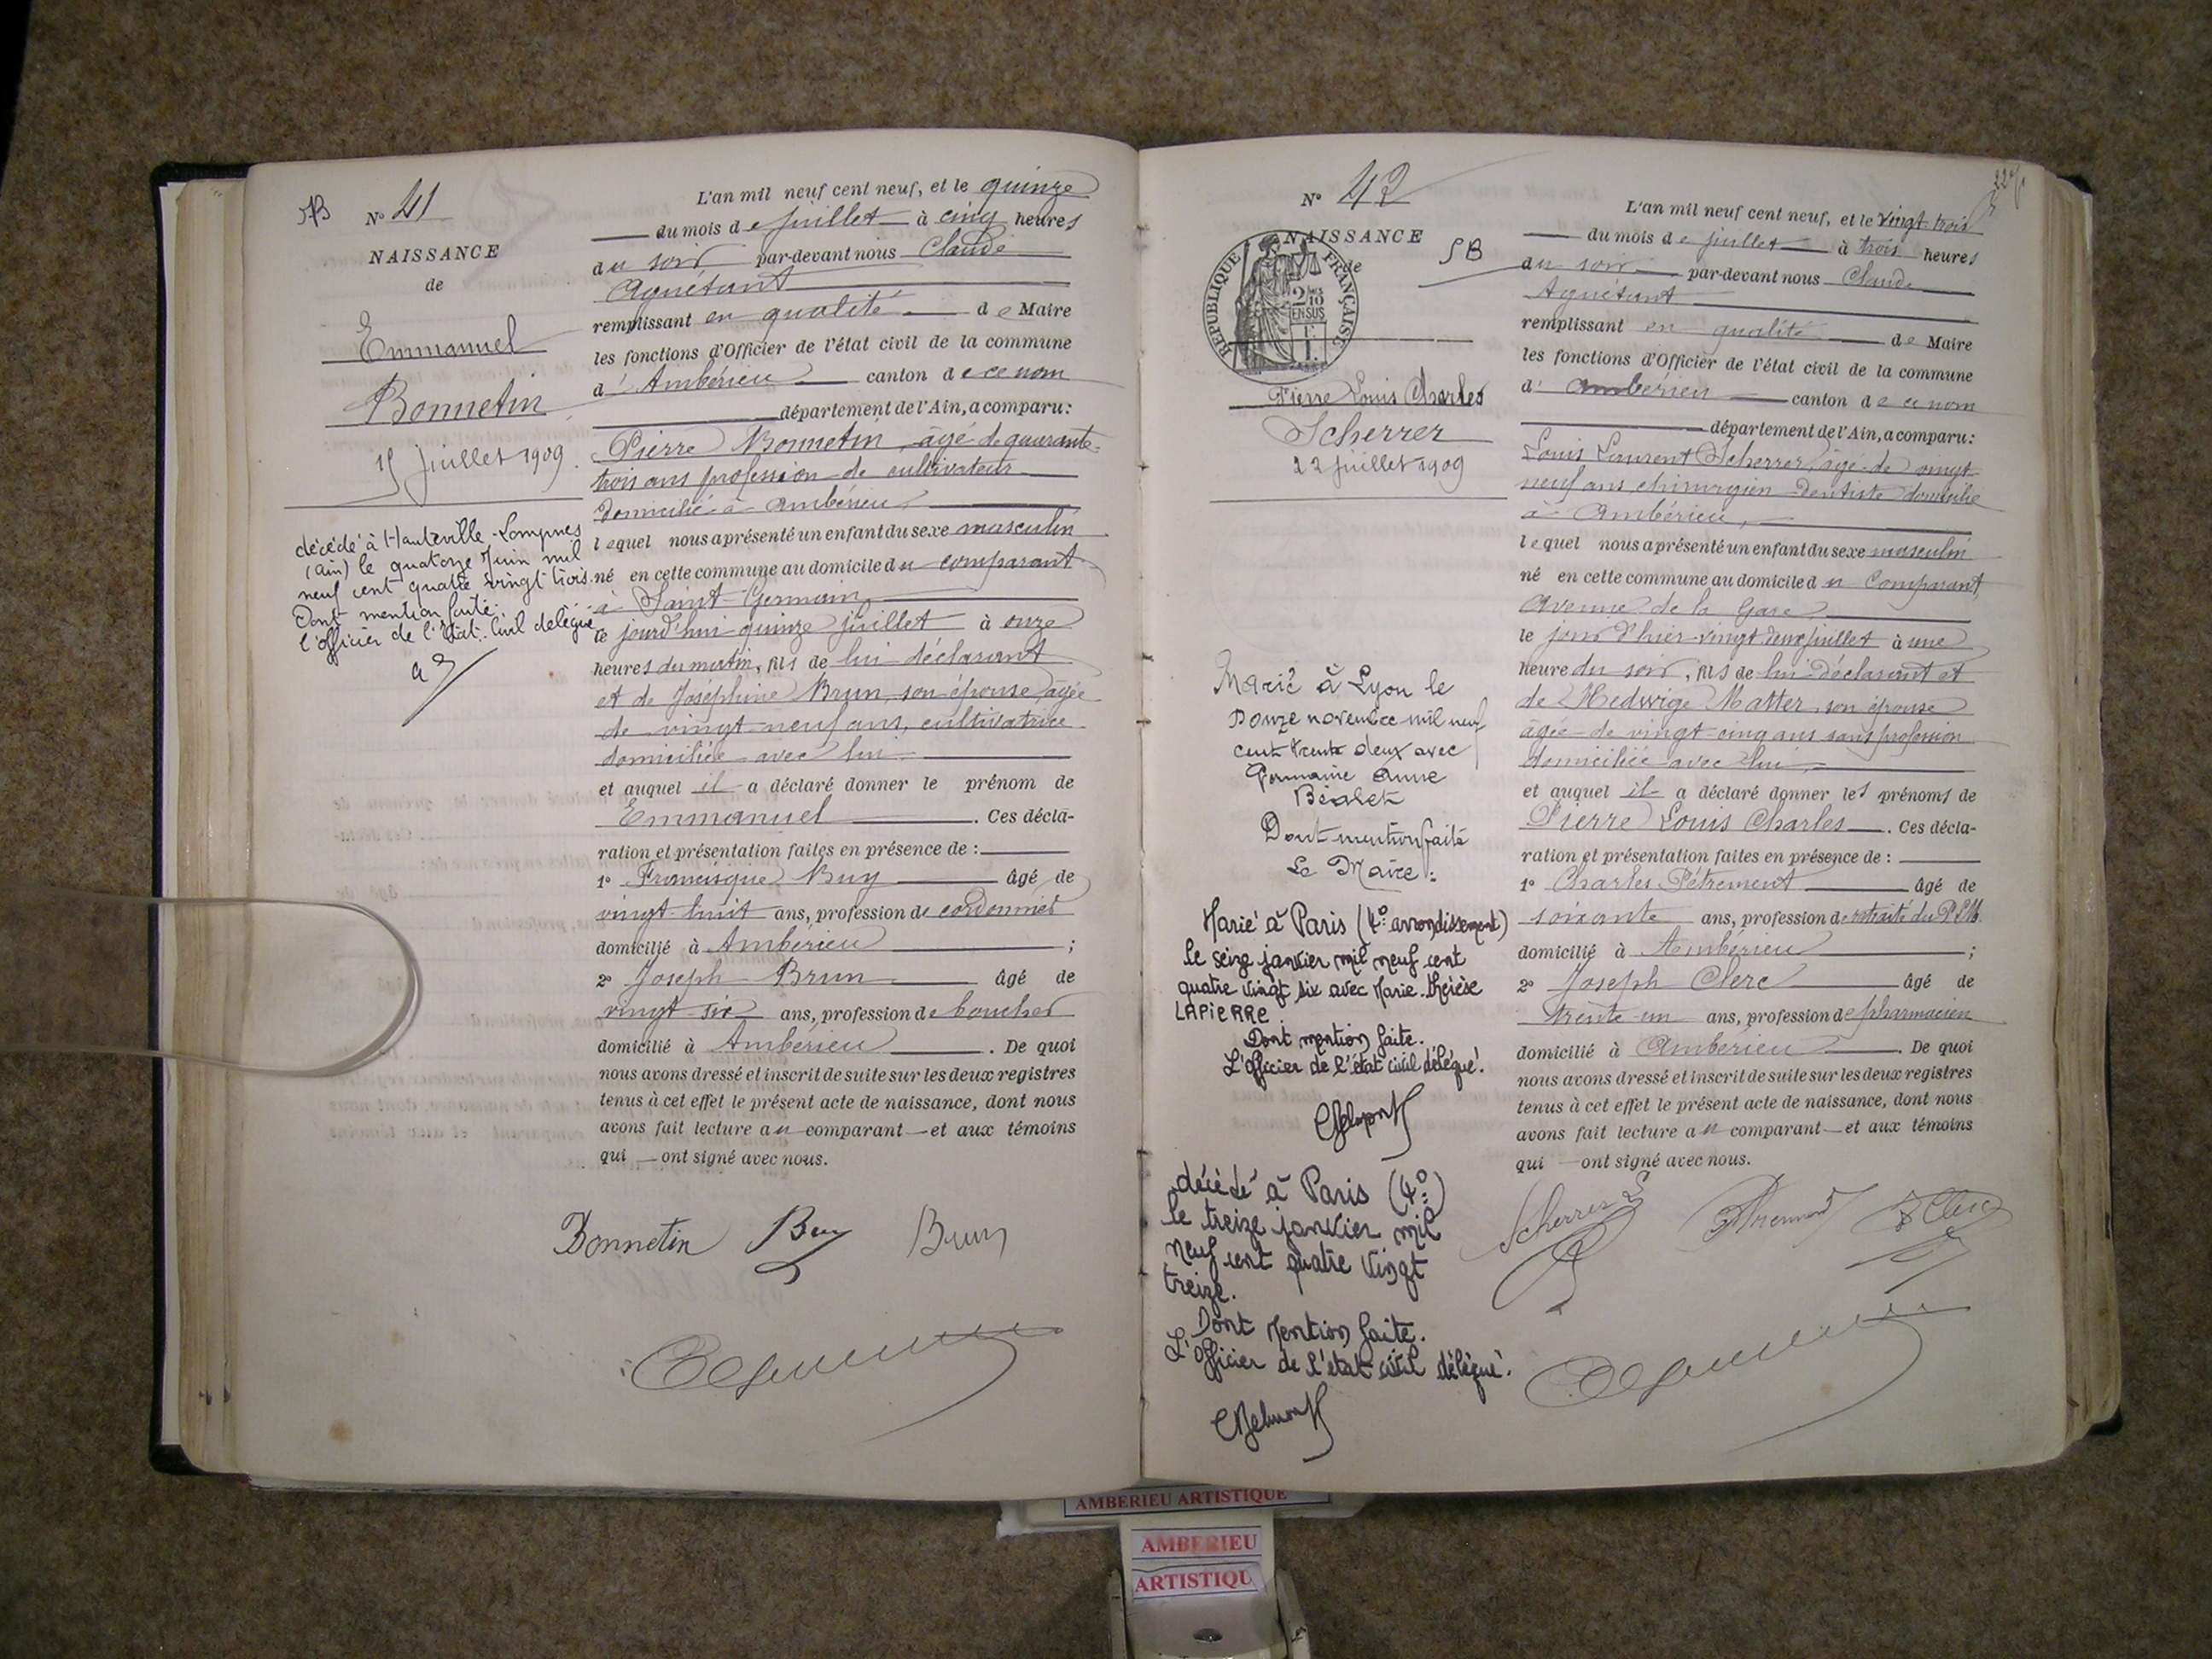 N° 41
NAISSANCE
de
Emmanuel
Bonnetin
15 juillet 1909
décédé à Hauteville-Lompnes
(Ain) le quatorze Juin mil
neuf cent quatre vingt trois.
Dont mention faite.
l'officier de l'Etat.Civil délégué
L'an mil neuf cent neuf, et le quinze
du mois de juillet à cinq heures
du soir par-devant nous Claude
Agnétant
remplissant en qualité de Maire
les fonctions d'Officier de l'état civil de la commune
d'Ambérieu canton de ce nom
département de l'Ain, a comparu:
Pierre Bonnetin, âgé de quarante-
trois ans profession de cultivateur
domicilié à Ambérieu
lequel nous a présenté un enfant du sexe masculin
né en cette commune au domicile du comparant
à Saint-Germain,
ce jourd'hui quinze juillet à onze
heures du matin, fils de lui déclarant
et de Joséphine Brun, son épouse âgée
de vingt-neuf ans, cultivatrice
domiciliée avec lui
et auquel il a déclaré donner le prénom de
Emmanuel. Ces décla-
ration et présentation faites en présence de :
1° Francisque Buy âgé de
vingt-huit ans, profession de cordonnier
domicilié à Ambérieu ;
2° Joseph Brun âgé de
vingt-six ans, profession de boucher
domicilié à Ambérieu. De quoi
nous avons dressé et inscrit de suite sur les deux registres
tenus à cet effet le présent acte de naissance, dont nous
avons fait lecture au comparant et aux témoins
qui ont signé avec nous.
Bonnetin Buy Brun
N° 42
NAISSANCE
de
SB
RÉPUBLIQUE FRANÇAISE
2/10
EN SUS
Pierre Louis Charles
Scherrer
22 juillet 1909
Marié à Lyon le
Douze novembre mil neuf
cent trente deux avec
Germaine Anne
Dont mention faite
Le Maire :
Marié à Paris (4° arrondissement)
le seize janvier mil neuf cent
quatre vingt six avec Marie-thérèse
LAPIERRE.
Dont mention faite.
L'officier de l'état civil délégué.
décédé à Paris (4°)
le treize janvier mil
neuf cent quatre vingt
treize.
Dont Mention faite.
L'officier de l'état civil délégué.
L'an mil neuf cent neuf, et le vingt-trois
du mois de juillet à trois heures
du soir par-devant nous Claude
Agnétant
remplissant en qualité de Maire
les fonctions d'Officier de l'état civil de la commune
d'Ambérieu canton de ce nom
département de l'Ain, a comparu:
Louis Laurent Scherrer, âgé de vingt
neuf ans, chirurgien-dentiste domicilié
à Ambérieu,
lequel nous a présenté un enfant du sexe masculin
né en cette commune au domicile du comparant,
avenue de la Gare,
le jour d'hier vingt deux juillet à une
heure du soir, fils de lui déclarant et
de Hedwige Matter, son épouse
âgée de vingt-cinq ans sans profession
domiciliée avec lui,
et auquel il a déclaré donner les prénoms de
Pierre Louis Charles. Ces décla-
ration et présentation faites en présence de :
1° Charles Pétrement âgé de
soixante ans, profession de retraité du P.L.M.
domicilié à Ambérieu ;
2° Joseph Clerc âgé de
trente-un ans, profession de pharmacien
domicilié à Ambérieu. De quoi
nous avons dressé et inscrit de suite sur les deux registres
tenus à cet effet le présent acte de naissance, dont nous
avons fait lecture au comparant et aux témoins
qui ont signé avec nous.
Scherrer L
AMBERIEU ARTISTIQUE
AMBERIEU
ARTISTIQU